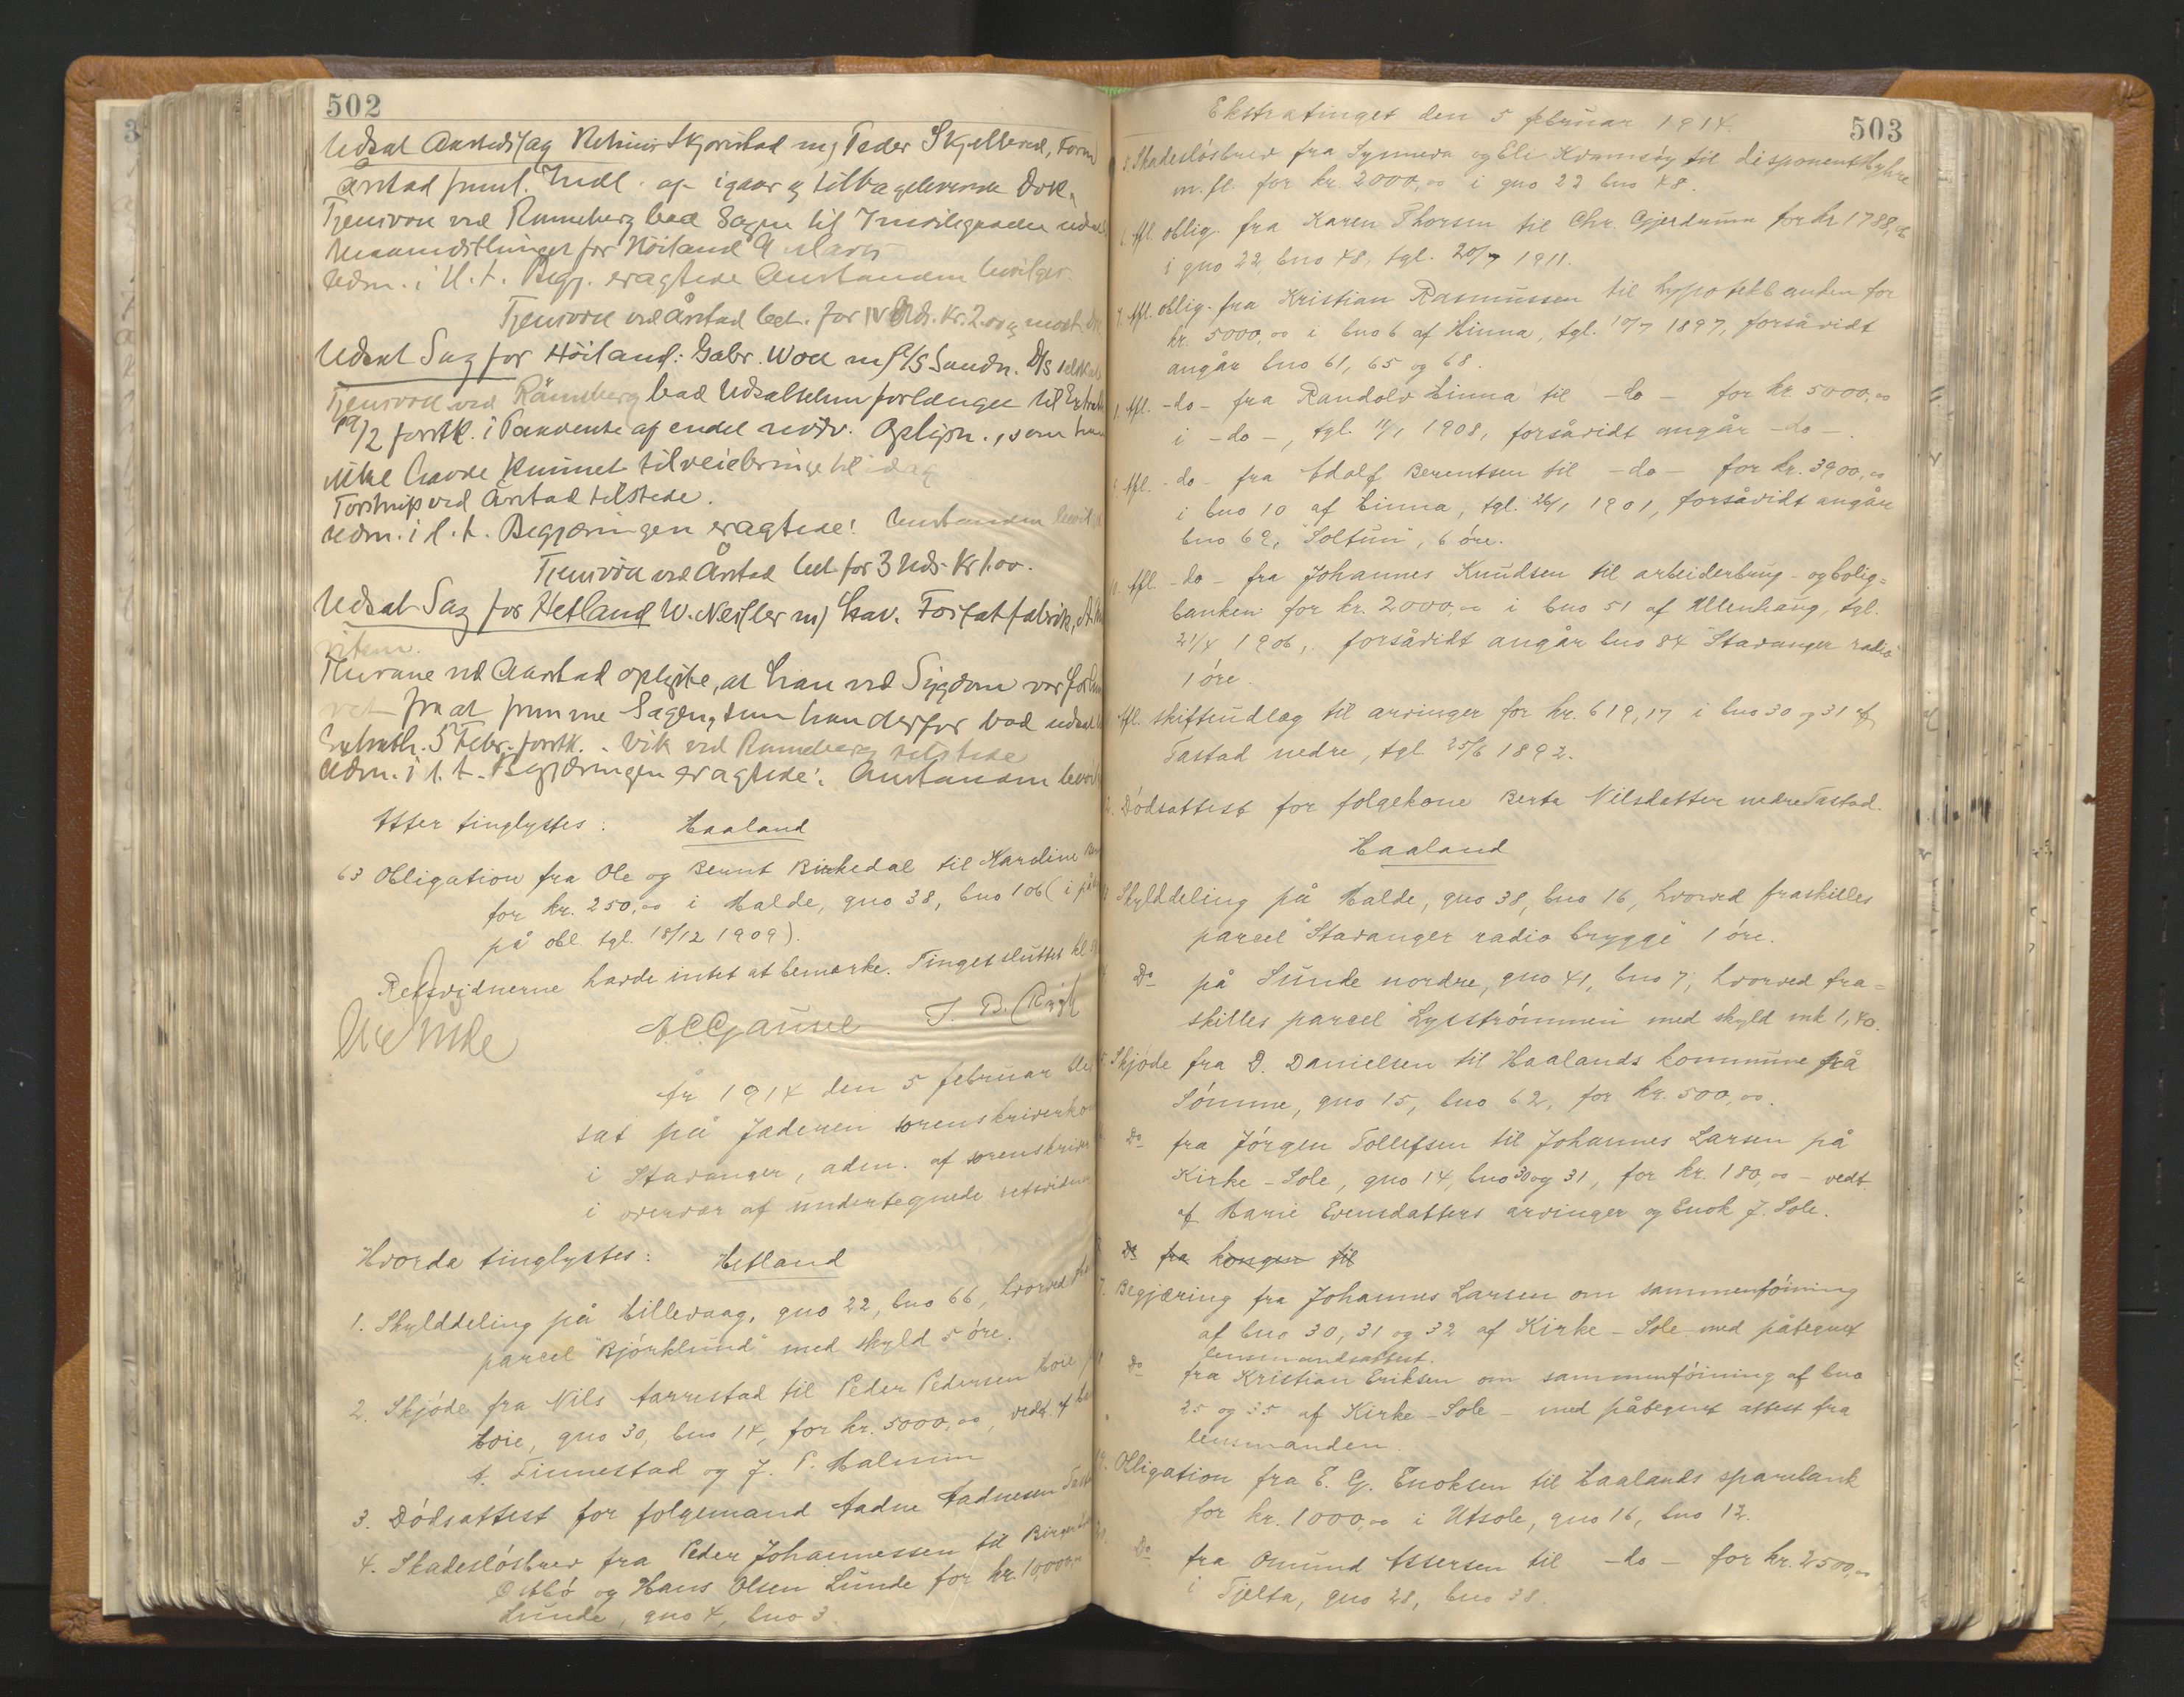 502
Udsat Aastedssag Skjørestad m/ Peder Skjelbred,
Årstad frml. Indl. af igaar & tilbageleverede Dok.
Tjensvoll ved Ranneberg bad Sagen til
for Höiland
Udm. i d. t. Begj. eragtede Anstanden bevilget
Tjensvoll ved Årstad bet. for IV Uds. Kr. 2.00 &
Udsat Sag for Höiland: Gabr. Woll m/ D/S Sandn. D/S
Tjensvoll ved Ranneberg bad Udsættelsen forlænget til
/2 førstk. i Paavente af endel nødv. Oplysn., som han
ikke havde kunnet tilveiebringe til idag
Torstrup ved Årstad tilstede.
Udm. i d. t. Begjæringen eragtede: Anstanden
Tjensvoll ved Årstad bet for 3 Uds. Kr 1.00.
Udsat Sag for Hetland W. Nessler m/ Stav. Fosfatfabrik,
Thurane ved Aarstad oplyste, at han ved Sygdom var
fra at fremme Sagen, som han derfor bad
Extrath. 5 Febr. førstk. Vik ved Ranneberg tilstede
Udm. i d. t. Begjæringen eragtede: Anstanden
Etter tinglystes: Haaland
63 Obligation fra Ole og Bernt Birkedal til Karoline
for kr. 250,00 i Halde, gno 38, bno 106 (i
på obl. tgl. 18/12 1909).
Retsvidnerne havde intet at bemærke. Tinget sluttet kl
år 1914 den 5 februar blev
sat på Jæderen sorenskriverko
i Stavanger, adm. af sorenskriver
i overvær af undertegnede retsvidner
Hvorda tinglystes: Hetland
1. Skylddeling på Hillevaag, gno 22, bno 66, hvorved
parcel "Bjórklund" med skyld 5 óre.
2. Skjóde fra Nils Aarrestad til Peder Pedersen Hoie
Hoie, gno 30, bno 14, for kr. 5000,00, vedt. af
A. Finnestad og J. P. Malmin
3. Dódsattest for folgemand Aadne Aadnesen
4. Skadeslósbrev fra Peder Johannessen til Birger
Ostbó og Hans Olsen Lunde for kr. 10,000,00
Lunde, gno 4, bno 3.
Ekstratinget den 5 februar 1914.
503
5. Skadeslósbrev fra Synneva og Eli Kvamsóy til disponent Myhre
m. fl. for kr. 2000,00 i gno 22 bno 48.
6. Afl. oblig. fra Karen Thorsen til Chr. Gjerdrum for kr 1788,
i gno 22, bno 48, tgl. 20/7 1911.
7. Afl. oblig. fra Kristian Rasmussen til hypotekbanken for
kr. 5000,00 i bno 6 af Hinna, tgl. 10/7 1897, forsåvidt
angår bno 61, 65 og 68.
Afl. -do- fra Randolv Hinna til -do- for kr. 5000,00
i -do-, tgl. 11/1 1908, forsåvidt angår -do-.
Afl. -do- fra Adolf Berentsen til -do- for kr. 3900,00
i bno 10 af Hinna, tgl. 26/1 1901, forsåvidt angår
bno 69, "Soltun", 6 óre.
Afl. -do- fra Johannes Knudsen til arbeiderbrug- og bolig=
banken for kr. 2000,00 i bno 51 af Ullenhaug, tgl.
21/4 1906, forsåvidt angår bno 84 "Stavanger radio"
1 óre.
Afl. skifteudlæg til arvinger for kr. 619,17 i bno 30 og 31 af
Tastad nedre, tgl. 25/6 1892.
Dódsattest for folgekone Berta Nilsdatter nedre Tastad.
Haaland
Skylddeling på Halde, gno 38, bno 16, hvorved fraskilles
parcel "Stavanger radio brygge" 1 óre.
Do på Sunde nordre, gno 41, bno 7, hvorved fra=
skilles parcel "Lysstrómmen" med skyld mk 1,40.
Skjóde fra D. Danielsen til Haalands kommune på
Sómme, gno 15, bno 62, for kr. 500,00.
Do fra Jórgen Tollefsen til Johannes Larsen på
Kirke-Sole, gno 14, bno 30 og 31, for kr. 180,00 - vedt
af Marie Evensdatters arvinger og Enok J. Sole.
Do fra kongen til
7. Begjæring fra Johannes Larsen om sammenfóining
af bno 30, 31 og 32 af Kirke-Sole med påtegnet
lensmandsattest.
Do fra Kristian Eriksen om sammenfóining af bno
25 og 35 af Kirke-Sole - med påtegnet attest fra
lensmanden.
19. Obligation fra E. G. Enoksen til Haalands sparebank
for kr. 1000,00 i Utsole, gno 16, bno 12.
Do fra Omund Assersen til -do- for kr. 2500,00
i Tjelta, gno 28, bno 38.